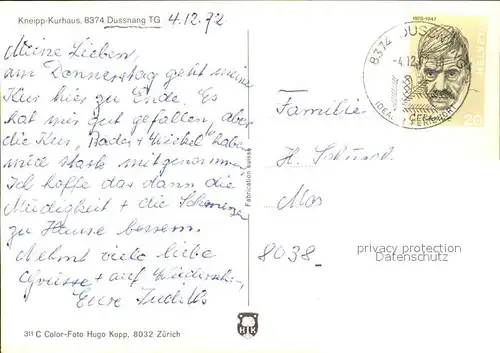 Kneipp-Kurhaus, 8374 Dussnang TG
4.12.72
Meine Lieben,
am Donnerstag geht meine
Kur hier zu Ende. Es
hat mir gut gefallen, aber
die Kur, Bäder + Wickel haben
mich stark mitgenommen
Ich hoffe das dann die
Müdigkeit + die Schmerzen
zu Hause bessern.
Nehmt viele liebe
Grüsse + auf Wiedersehn,
Eure Judith
311 C Color-Foto Hugo Kopp, 8032 Zürich
Fabrication suisse
HK
1875-1947
HELVETIA
20
8374 DUSSNANG
-4.12.
IDEAL
Familie
H.
8038
privacy protection
Datenschutz